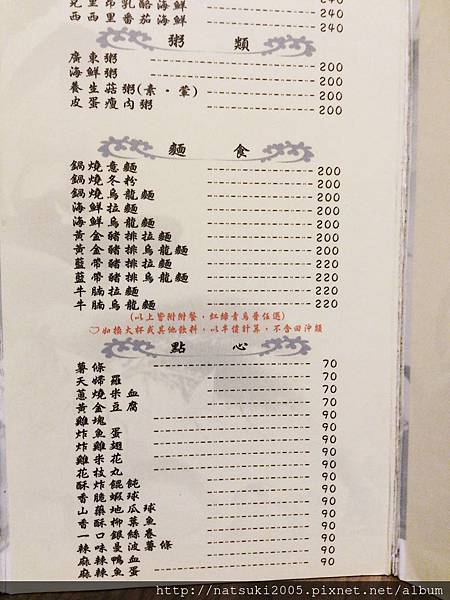 里昂乳酪海鮮 240
西西里番茄海鮮 240
240
粥 類
廣東粥 200
海鮮粥 200
養生菇粥(素・葷) 200
皮蛋瘦肉粥 200
麵 食
鍋燒意麵 200
鍋燒冬粉 200
鍋燒烏龍麵 200
海鮮拉麵 200
海鮮烏龍麵 200
黃金豬排拉麵 200
黃金豬排烏龍麵 200
藍帶豬排拉麵 220
藍帶豬排烏龍麵 220
牛腩拉麵 220
牛腩烏龍麵 220
(以上皆附附餐,紅綠青烏普任選)
如換大杯或其他飲料,以半價計算,不含回沖類
點 心
薯條 70
天婦羅 70
蔥燒米血 70
黃金豆腐 90
雞塊 90
炸魚蛋 90
炸雞翅 90
雞米花 90
花枝丸 90
酥炸餛飩 90
香脆蝦球 90
山藥地瓜球 90
香酥柳葉魚 90
一口銀絲卷 90
辣味曼波薯條 90
麻辣鴨血 90
麻辣魚蛋 90
http://natsuki2005.pixnet.net/album